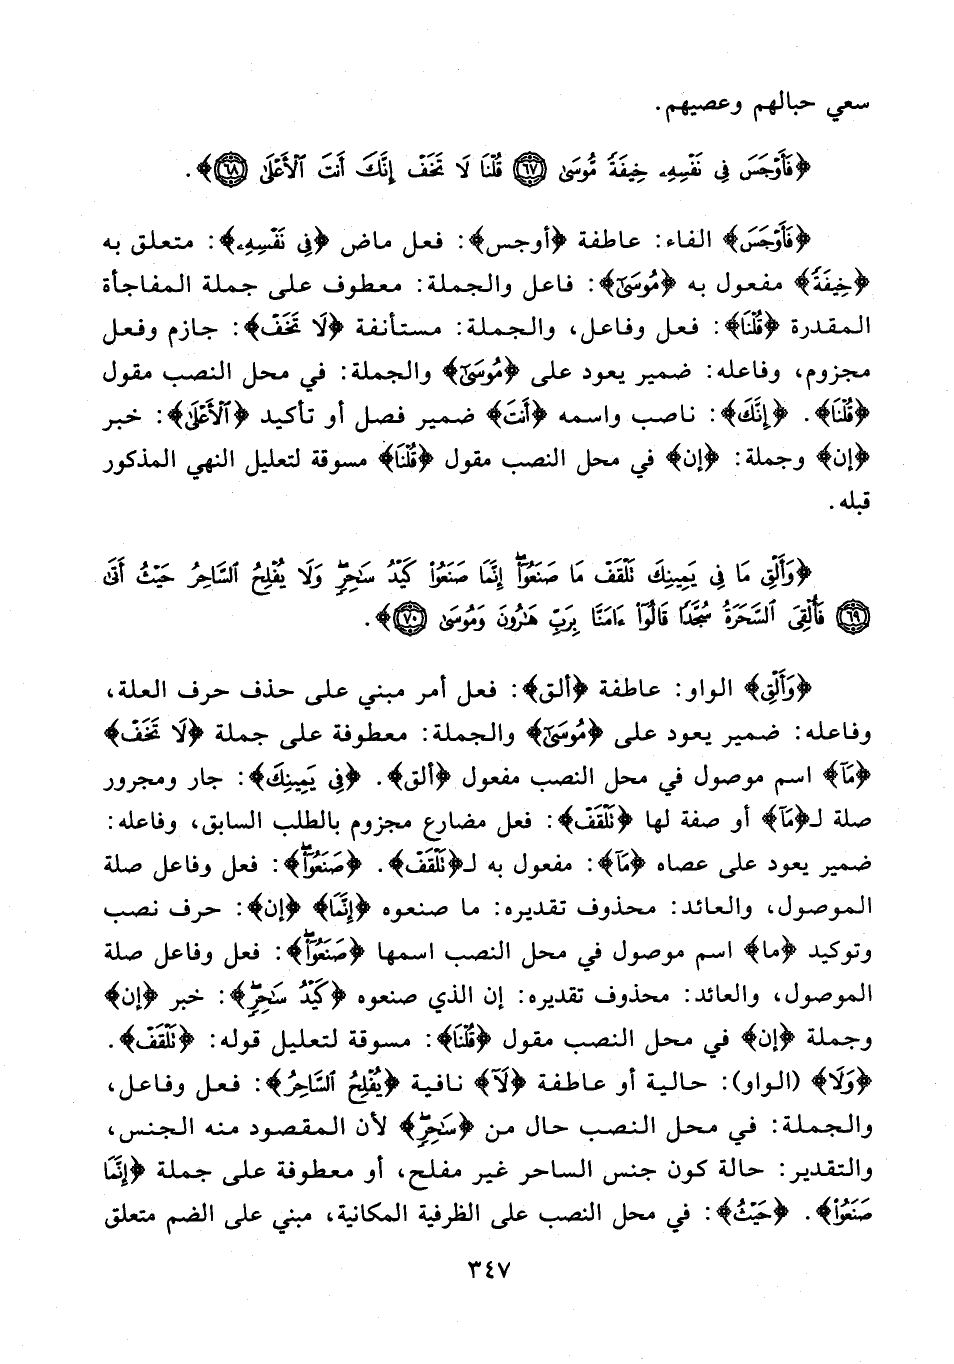 سعي حبالهم وعصيهم.
﴿فَأَوْجَسَ فِي نَفْسِهِۦ خِيفَةً مُّوسَىٰ ٦٧ قُلْنَا لَا تَخَفْ إِنَّكَ أَنتَ ٱلْأَعْلَىٰ ٦٨﴾.
﴿فَأَوْجَسَ﴾ الفاء: عاطفة ﴿أوجس﴾: فعل ماض ﴿فِي نَفْسِهِۦ﴾: متعلق به
﴿خِيفَةً﴾ مفعول به ﴿مُوسَىٰ﴾: فاعل والجملة: معطوف على جملة المفاجأة
المقدرة ﴿قُلْنَا﴾: فعل وفاعل، والجملة: مستأنفة ﴿لَا تَخَفْ﴾: جازم وفعل
مجزوم، وفاعله: ضمير يعود على ﴿مُوسَىٰ﴾ والجملة: في محل النصب مقول
﴿قُلْنَا﴾. ﴿إِنَّكَ﴾: ناصب واسمه ﴿أَنتَ﴾ ضمير فصل أو تأكيد ﴿ٱلْأَعْلَىٰ﴾: خبر
﴿إن﴾ وجملة: ﴿إن﴾ في محل النصب مقول ﴿قُلْنَا﴾ مسوقة لتعليل النهي المذكور
قبله.
﴿وَأَلْقِ مَا فِي يَمِينِكَ تَلْقَفْ مَا صَنَعُوٓا۟ۖ إِنَّمَا صَنَعُوا۟ كَيْدُ سَٰحِرٍۖ وَلَا يُفْلِحُ ٱلسَّاحِرُ حَيْثُ أَتَىٰ
٦٩ فَأُلْقِيَ ٱلسَّحَرَةُ سُجَّدًا قَالُوٓا۟ ءَامَنَّا بِرَبِّ هَٰرُونَ وَمُوسَىٰ ٧٠﴾.
﴿وَأَلْقِ﴾ الواو: عاطفة ﴿ألق﴾: فعل أمر مبني على حذف حرف العلة،
وفاعله: ضمير يعود على ﴿مُوسَىٰ﴾ والجملة: معطوفة على جملة ﴿لَا تَخَفْ﴾
﴿مَآ﴾ اسم موصول في محل النصب مفعول ﴿ألق﴾. ﴿فِي يَمِينِكَ﴾: جار ومجرور
صلة لـ﴿مَآ﴾ أو صفة لها ﴿تَلْقَفْ﴾: فعل مضارع مجزوم بالطلب السابق، وفاعله:
ضمير يعود على عصاه ﴿مَآ﴾: مفعول به لـ﴿تَلْقَفْ﴾. ﴿صَنَعُوٓا۟ۖ﴾: فعل وفاعل صلة
الموصول، والعائد: محذوف تقديره: ما صنعوه ﴿إِنَّمَا﴾ ﴿إن﴾: حرف نصب
وتوكيد ﴿ما﴾ اسم موصول في محل النصب اسمها ﴿صَنَعُوٓا۟ۖ﴾: فعل وفاعل صلة
الموصول، والعائد: محذوف تقديره: إن الذي صنعوه ﴿كَيْدُ سَٰحِرٍۖ﴾: خبر ﴿إن﴾
وجملة ﴿إن﴾ في محل النصب مقول ﴿قُلْنَا﴾: مسوقة لتعليل قوله: ﴿تَلْقَفْ﴾.
﴿وَلَا﴾ (الواو): حالية أو عاطفة ﴿لَآ﴾ نافية ﴿يُفْلِحُ ٱلسَّاحِرُ﴾: فعل وفاعل،
والجملة: في محل النصب حال من ﴿سَٰحِرٍۖ﴾ لأن المقصود منه الجنس،
والتقدير: حالة كون جنس الساحر غير مفلح، أو معطوفة على جملة ﴿إِنَّمَا
صَنَعُوا۟﴾. ﴿حَيْثُ﴾: في محل النصب على الظرفية المكانية، مبني على الضم متعلق
٣٤٧